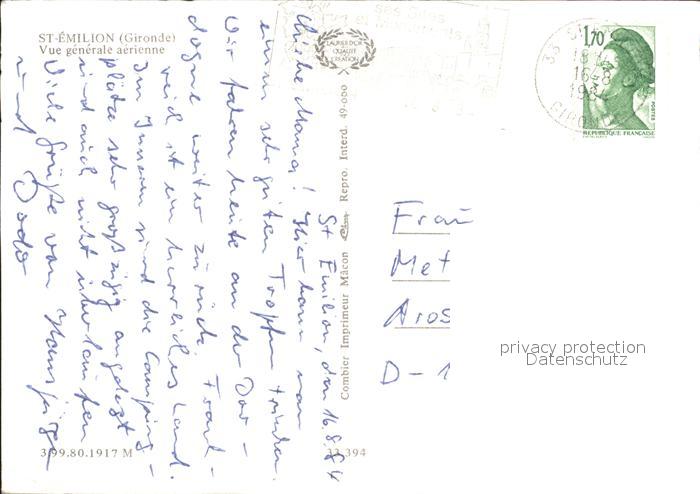 ST-ÉMILION (Gironde)
Vue générale aérienne
LAURIER D'OR
QUALITÉ
CRÉATION
St Emilion, den 16.8.84
Liebe Mama! Hier kann man
einen sehr guten Tropfen trinken.
Wir fahren heute an der Dor-
dogne weiter zurück. Frank-
reich ist ein herrliches Land.
Im Innern sind die Camping-
plätze sehr großzügig angelegt
sind auch nicht überlaufen
Viele Grüße von Hansjürgen
und Dodo
3.99.80.1917 M
33.394
Combier Imprimeur Mâcon
Repro. Interd. 49-000
33
18
16-8
198
GIRO
1,70
POSTES
REPUBLIQUE FRANÇAISE
Frau
Met
Aros
D-1
privacy protection
Datenschutz